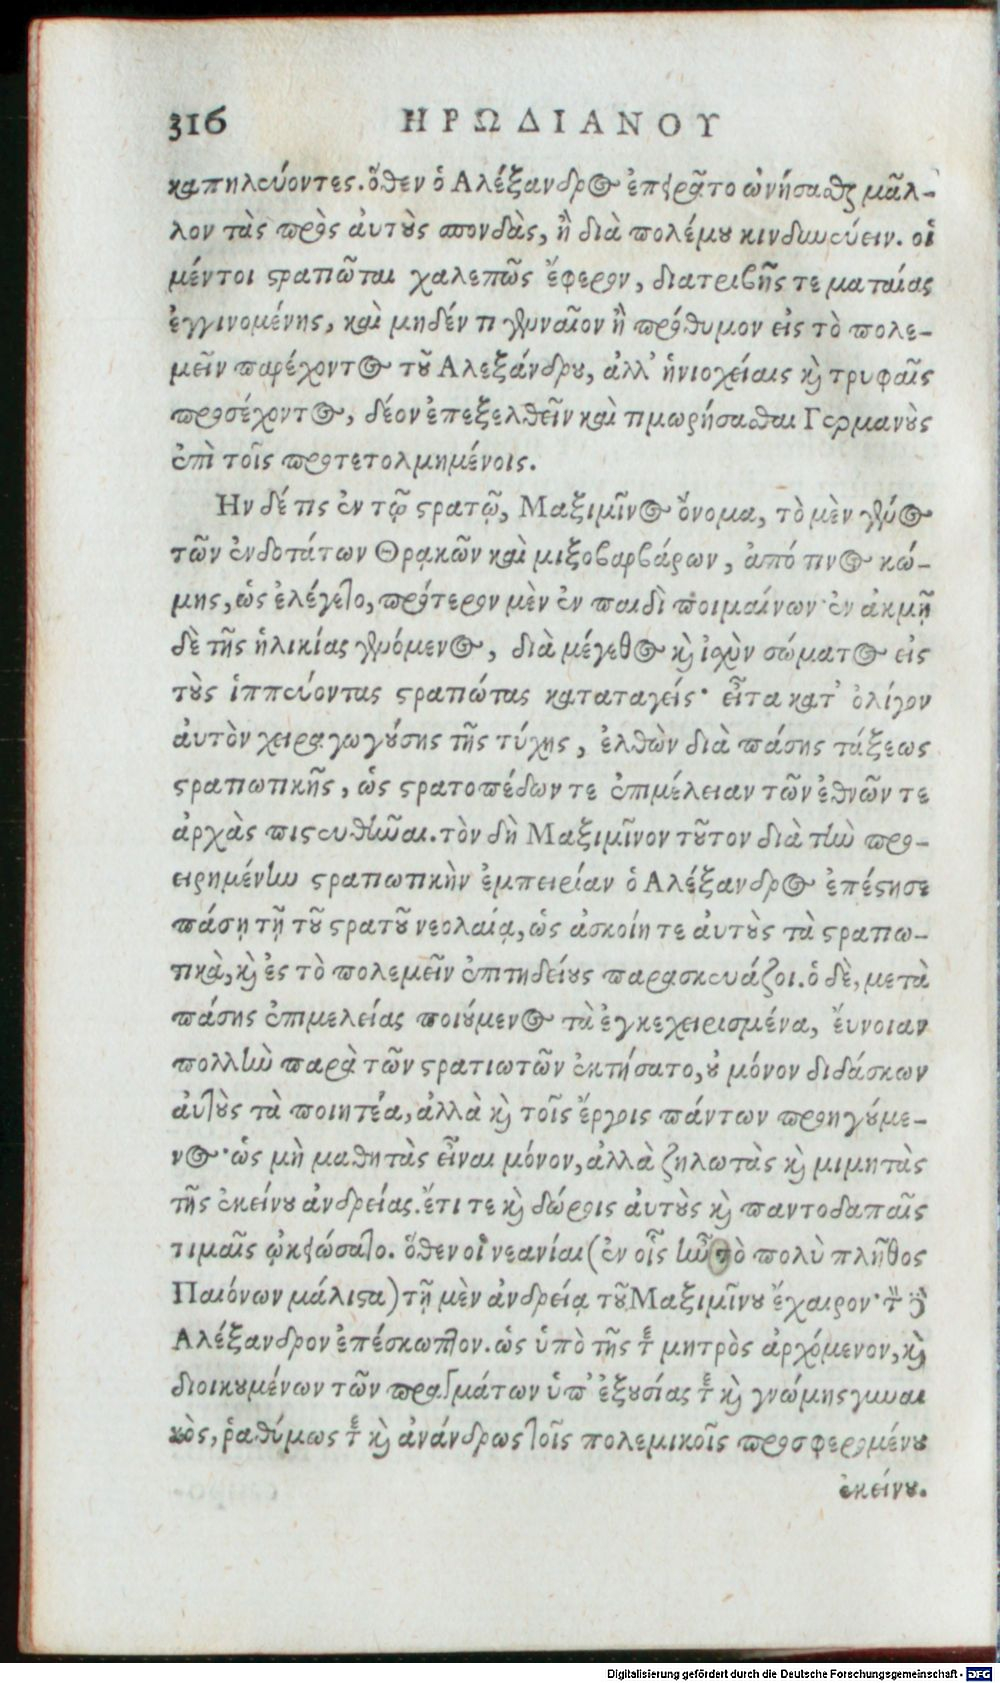 316 ΗΡΩΔΙΑΝΟΥ
καπηλεύοντες. ὅθεν ὁ Αλέξανδρος ἐπειρᾶτο ὠνήσασθαι μᾶλ-
λον τὰς πρὸς ἀυτοὺς σπονδὰς, ἢ διὰ πολέμου κινδυνεύειν. οἱ
μέντοι στρατιῶται χαλεπῶς ἔφερον, διατριβῆς τε ματαίας
ἐγγινομένης, καὶ μηδέν τι γενναῖον ἢ πρόθυμον εἰς τὸ πολε-
μεῖν παρέχοντος τοῦ Αλεξάνδρου, ἀλλ' ἡνιοχείαις καὶ τρυφαῖς
προσέχοντος, δέον ἐπεξελθεῖν καὶ τιμωρήσασθαι Γερμανοὺς
ἐπὶ τοῖς προτετολμημένοις.
Ην δέ τις ἐν τῷ στρατῷ, Μαξιμῖνος ὄνομα, τὸ μὲν γένος
τῶν ἐνδοτάτων Θρακῶν καὶ μιξοβαρβάρων, ἀπό τινος κώ-
μης, ὡς ἐλέγετο, πρότερον μὲν ἐν παιδὶ ποιμαίνων· ἐν ἀκμῇ
δὲ τῆς ἡλικίας γενόμενος, διὰ μέγεθος καὶ ἰσχὺν σώματος εἰς
τοὺς ἱππεύοντας στρατιώτας καταταγείς· εἶτα κατ' ὀλίγον
ἀυτὸν χειραγωγούσης τῆς τύχης, ἐλθὼν διὰ πάσης τάξεως
στρατιωτικῆς, ὡς στρατοπέδων τε ἐπιμέλειαν τῶν ἐθνῶν τε
ἀρχὰς πιστευθῆναι. τὸν δὴ Μαξιμῖνον τοῦτον διὰ τὴν προ-
ειρημένην στρατιωτικὴν ἐμπειρίαν ὁ Αλέξανδρος ἐπέστησε
πάσῃ τῇ τοῦ στρατοῦ νεολαίᾳ, ὡς ἀσκοίη τε ἀυτοὺς τὰ στρατιω-
τικὰ, καὶ ἐς τὸ πολεμεῖν ἐπιτηδείους παρασκευάζοι. ὁ δὲ, μετὰ
πάσης ἐπιμελείας ποιούμενος τὰ ἐγκεχειρισμένα, ἔυνοιαν
πολλὴν παρὰ τῶν στρατιωτῶν ἐκτήσατο, οὐ μόνον διδάσκων
ἀυτοὺς τὰ ποιητέα, ἀλλὰ καὶ τοῖς ἔργοις πάντων προηγούμε-
νος· ὡς μὴ μαθητὰς εἶναι μόνον, ἀλλὰ ζηλωτὰς καὶ μιμητὰς
τῆς ἐκείνου ἀνδρείας. ἔτι τε καὶ δώροις ἀυτοὺς καὶ παντοδαπαῖς
τιμαῖς ᾠκειώσατο. ὅθεν οἱ νεανίαι (ἐν οἷς ἦν τὸ πολὺ πλῆθος
Παιόνων μάλιστα) τῇ μὲν ἀνδρείᾳ τοῦ Μαξιμίνου ἔχαιρον· τὸν δὲ
Αλέξανδρον ἐπέσκωπτον. ὡς ὑπὸ τῆς τε μητρὸς ἀρχόμενον, καὶ
διοικουμένων τῶν πραγμάτων ὑπ' ἐξουσίας τε καὶ γνώμης γυναι
κὸς, ῥαθύμως τε καὶ ἀνάνδρως τοῖς πολεμικοῖς προσφερομένου
ἐκείνου.
Digitalisierung gefördert durch die Deutsche Forschungsgemeinschaft - DFG